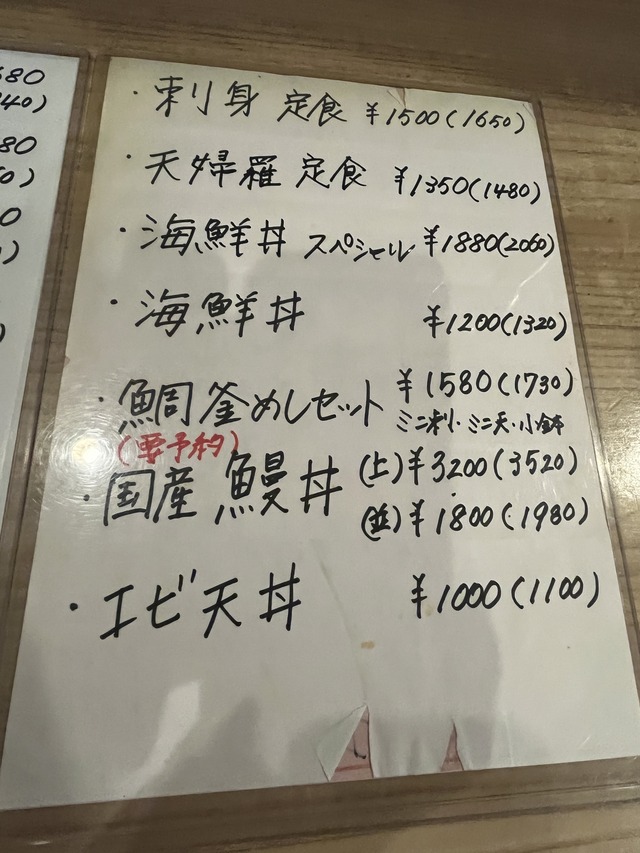 680
40)
80
0)
0
)
)
・刺身 定食 ¥1500(1650)
・天婦羅 定食 ¥1350(1480)
・海鮮丼 スペシャル ¥1880(2060)
・海鮮丼 ¥1200(1320)
・鯛釜めしセット ¥1580(1730)
ミニ刺・ミニ天・小鉢
(要予約)
・国産 鰻丼 (上)¥3200(3520)
(並)¥1800(1980)
・エビ天丼 ¥1000(1100)